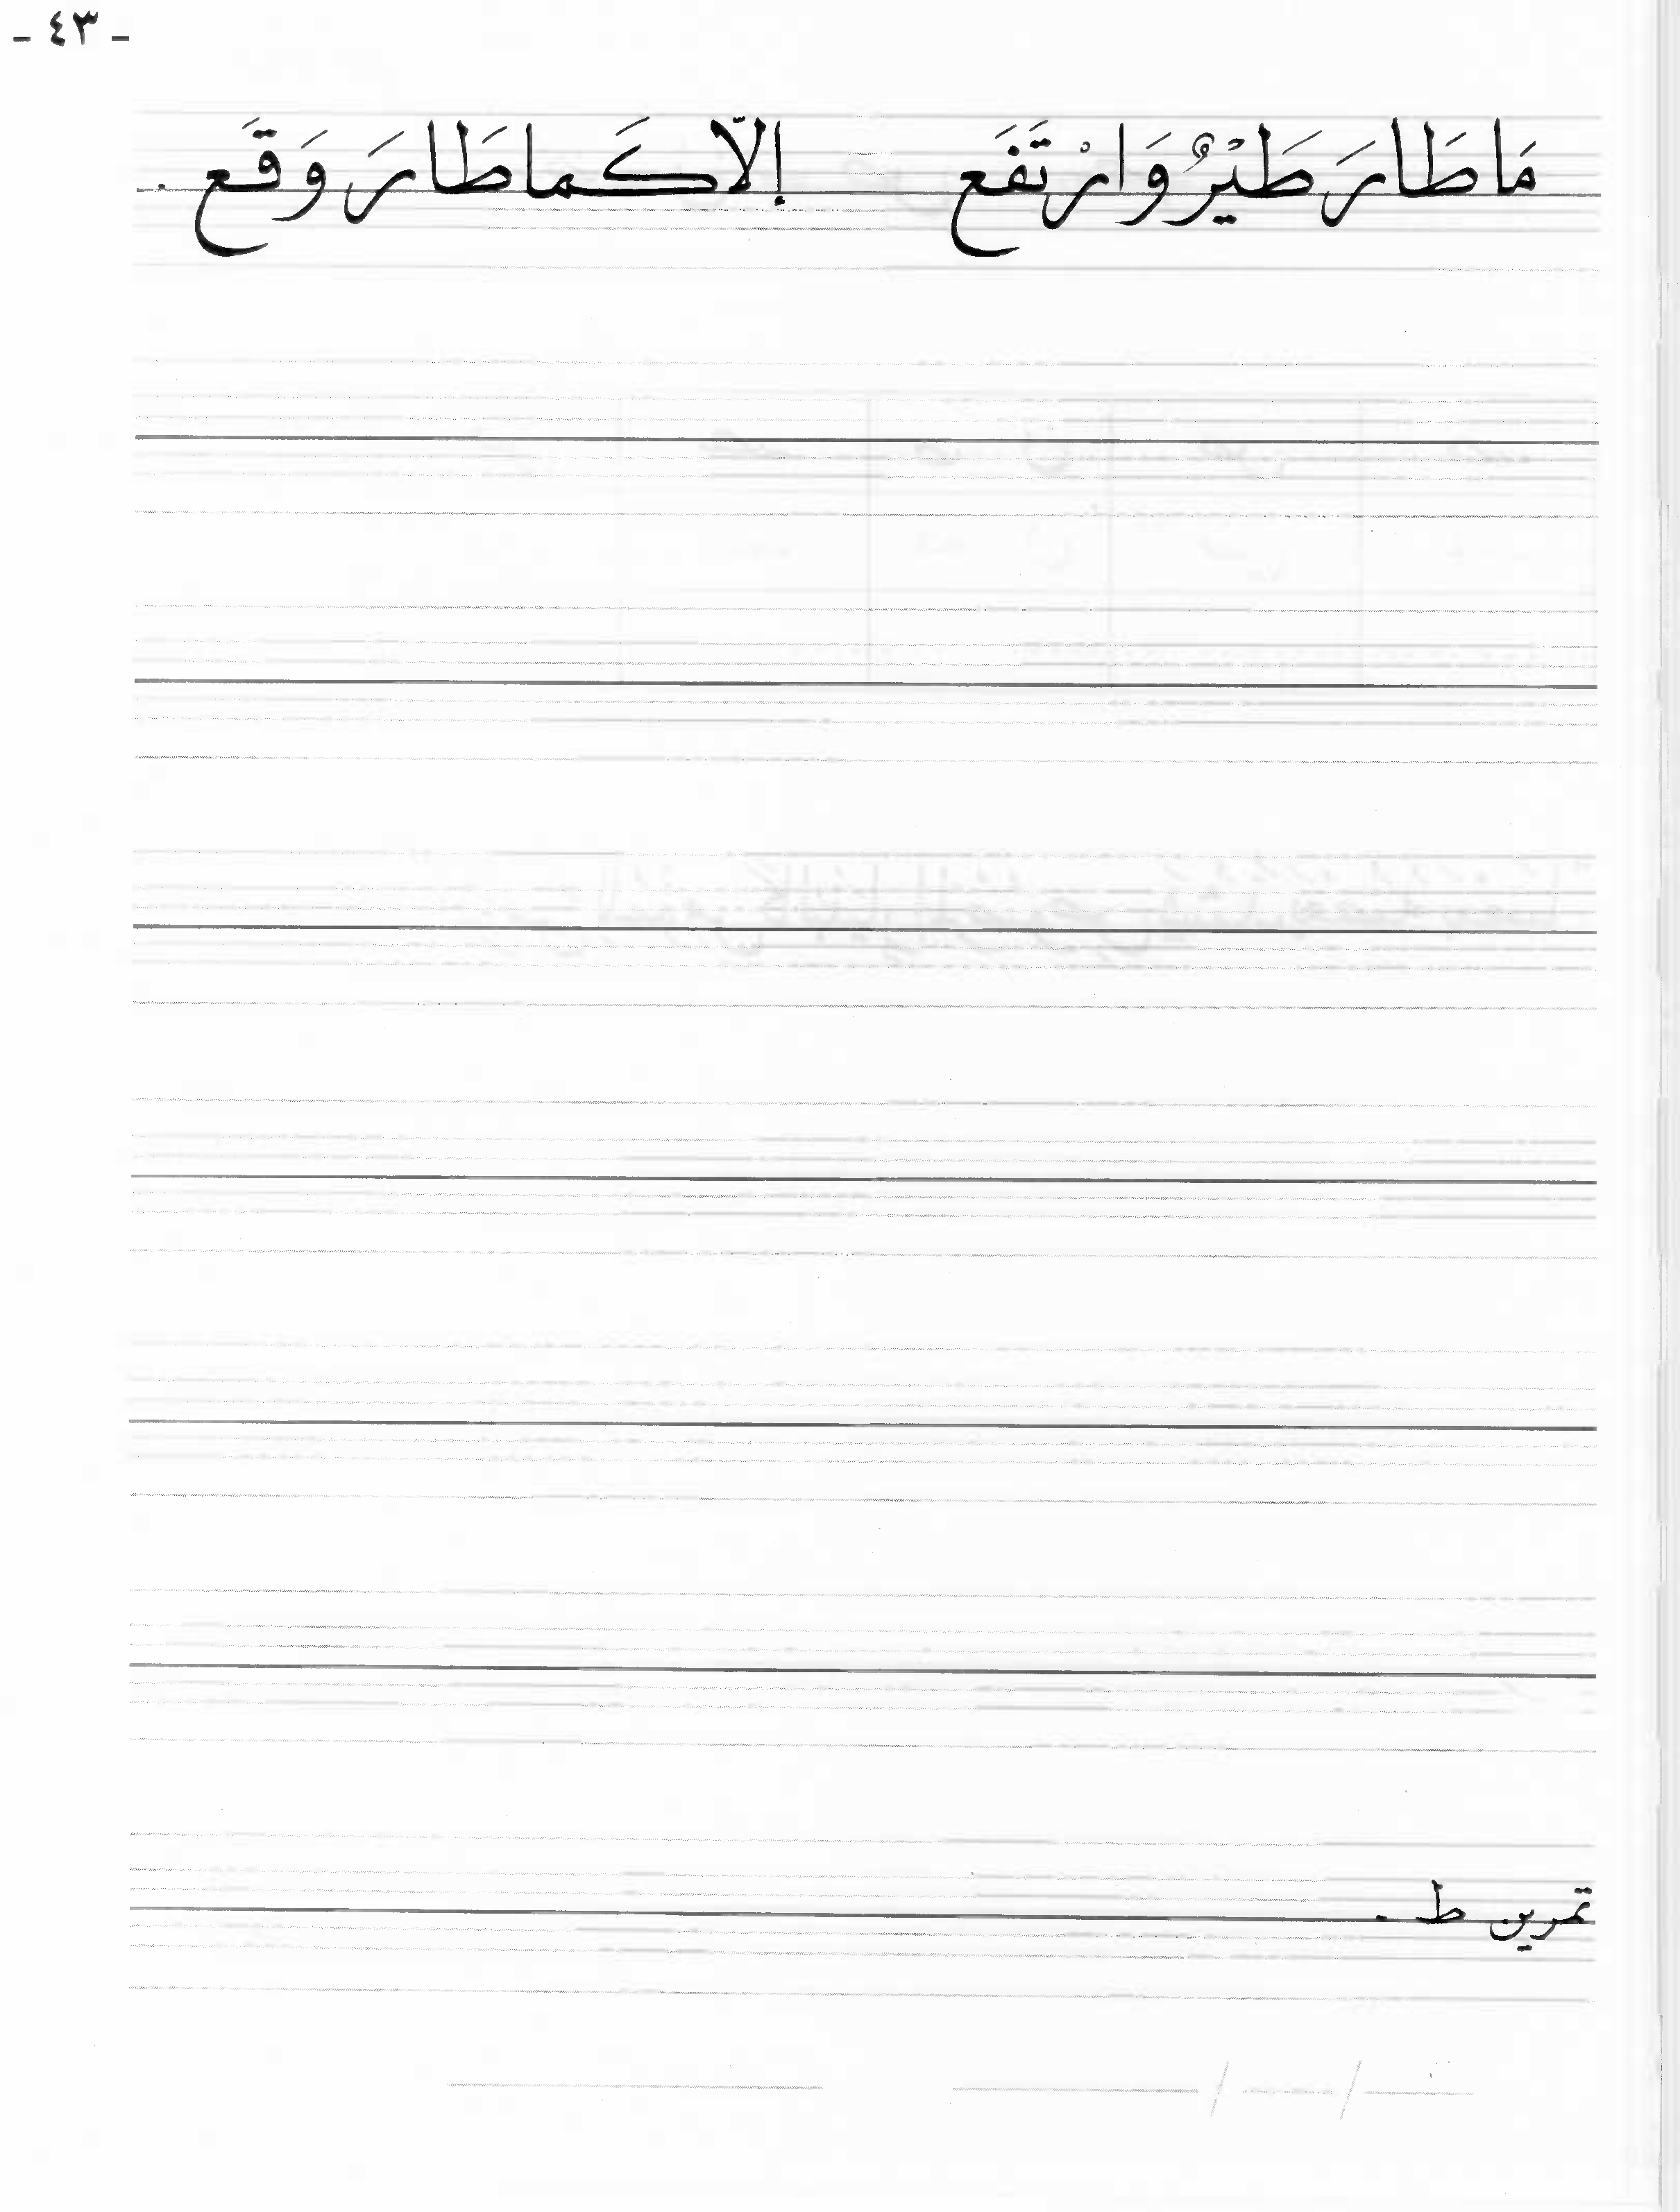 - ٤٣ -
مَا طَارَ طَيْرٌ وَارْتَفَع إلاّ كَما طَارَ وَقَع .
تمرين ط .